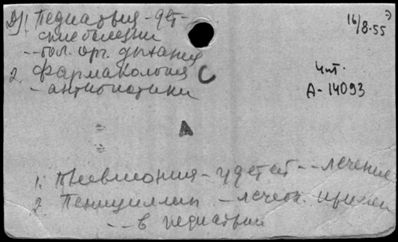 1. Педиатрия - дет-
ские болезни
-- бол. орг. дыхания
2. Фармакология С
- антибиотики
16/8-55
Чит.
А-14093
А
1. Пневмония - у детей -- лечение
2. Пенициллин - лечебн. примен
-- в педиатрии